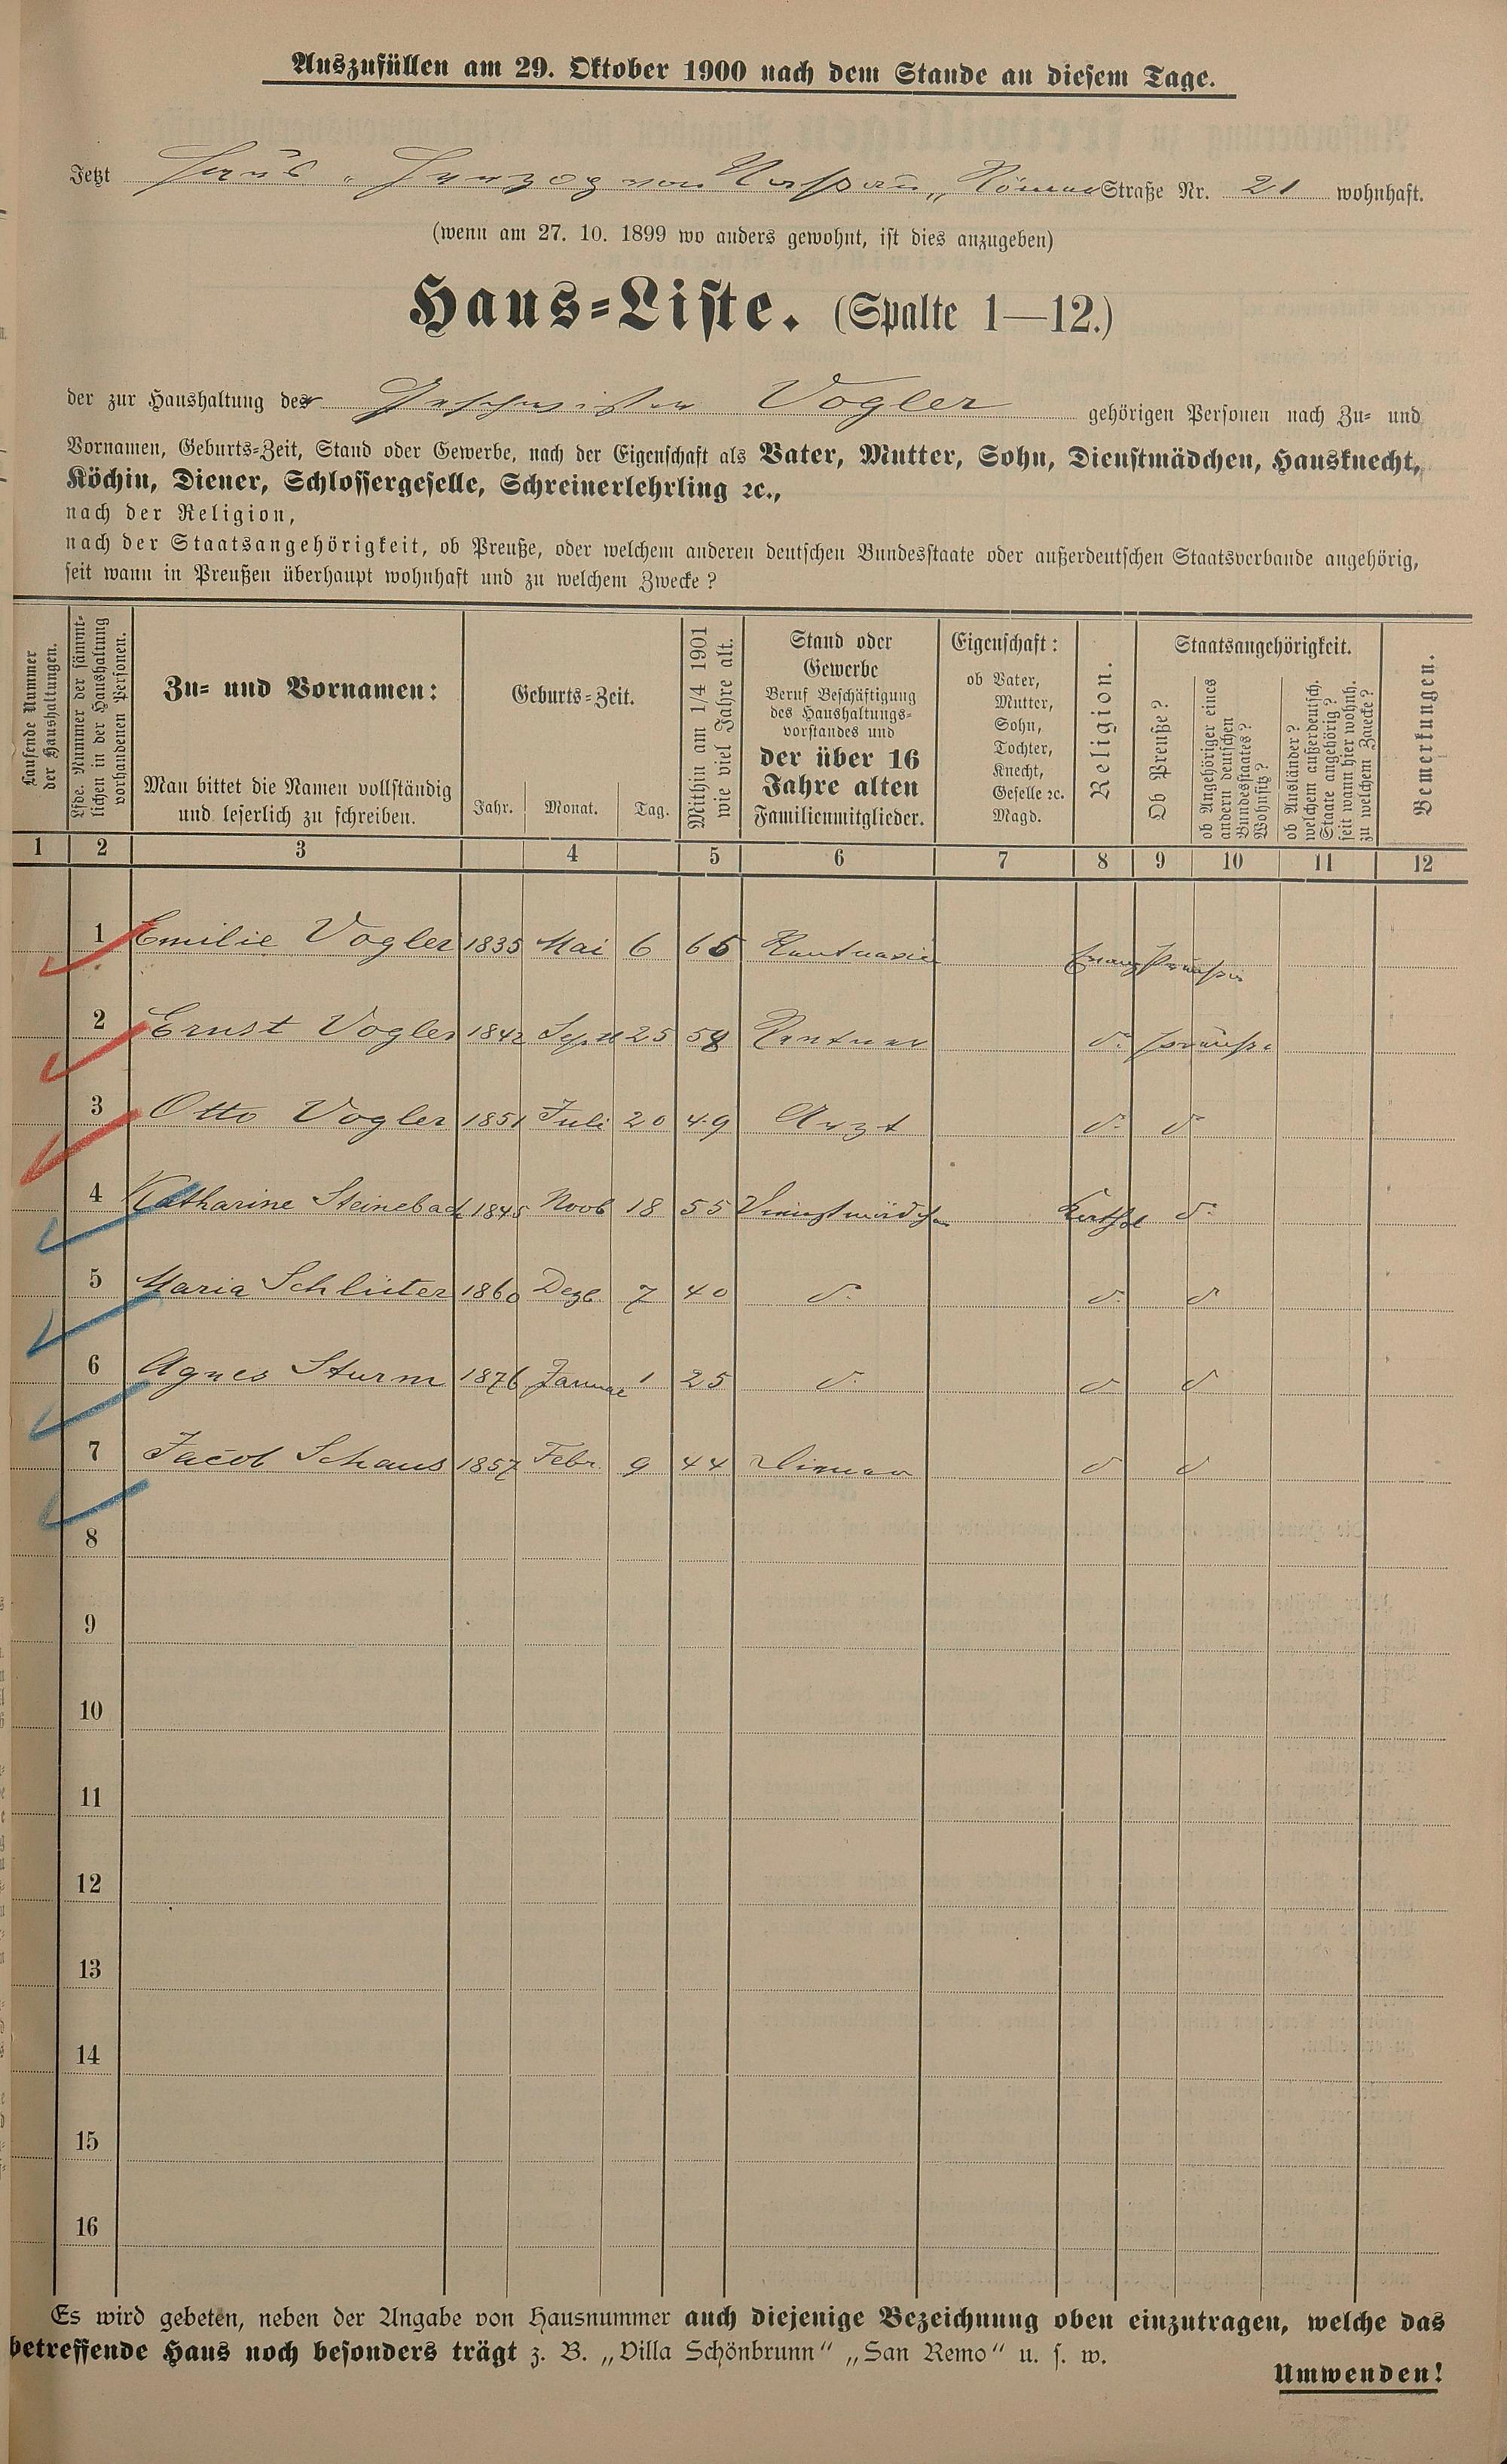 Auszufüllen am 29. Oktober 1900 nach dem Stande an diesem Tage.
Jetzt Haus „Herzog von Nassau„ Römer Straße Nr. 21 wohnhaft.
(wenn am 27. 10. 1899 wo anders gewohnt, ist dies anzugeben)
Haus-Liste. (Spalte 1—12.)
der zur Haushaltung der Geschwister Vogler gehörigen Personen nach Zu- und
Vornamen, Geburts-Zeit, Stand oder Gewerbe, nach der Eigenschaft als Vater, Mutter, Sohn, Dienstmädchen, Hausknecht,
Köchin, Diener, Schlossergeselle, Schreinerlehrling ꝛc.,
nach der Religion,
nach der Staatsangehörigkeit, ob Preuße, oder welchem anderen deutschen Bundesstaate oder außerdeutschen Staatsverbande angehörig,
seit wann in Preußen überhaupt wohnhaft und zu welchem Zwecke?
Laufende Nummer
der Haushaltungen.
Lfde. Nummer der sämmt-
lichen in der Haushaltung
vorhandenen Personen.
Zu- und Vornamen:
Man bittet die Namen vollständig
und leserlich zu schreiben.
Geburts-Zeit.
Jahr. Monat. Tag.
Mithin am 1/4 1901
wie viel Jahre alt.
Stand oder
Gewerbe
Beruf Beschäftigung
des Haushaltungs-
vorstandes und
der über 16
Jahre alten
Familienmitglieder.
Eigenschaft:
ob Vater,
Mutter,
Sohn,
Tochter,
Knecht,
Geselle ꝛc.
Magd.
Religion.
Staatsangehörigkeit.
Ob Preuße?
ob Angehöriger eines
andern deutschen
Bundesstaates?
Wohnsitz?
ob Ausländer?
welchem außerdeutsch.
Staate angehörig?
seit wann hier wohnh.
zu welchem Zwecke?
Bemerkungen.
1 2 3 4 5 6 7 8 9 10 11 12
1 Emilie Vogler 1835 Mai 6 65 Evang
2 Ernst Vogler 1842 Sept 25 58 Rentner d. Preuße
3 Otto Vogler 1851 Juli 20 49 Arzt d. d
4 Katharine Steinebach 1845 Novb 18 55 Dienstmädchen Kathol d.
5 Maria Schlüter 1860 Dezb. 7 40 d. d. d
6 Agnes Sturm 1876 Januar 1 25 d. d d
7 Jacob Schaus 1857 Febr. 9 44 Diener d d
8
9
10
11
12
13
14
15
16
Es wird gebeten, neben der Angabe von Hausnummer auch diejenige Bezeichnung oben einzutragen, welche das
betreffende Haus noch besonders trägt z. B. „Villa Schönbrunn“ „San Remo“ u. s. w.
Umwenden!